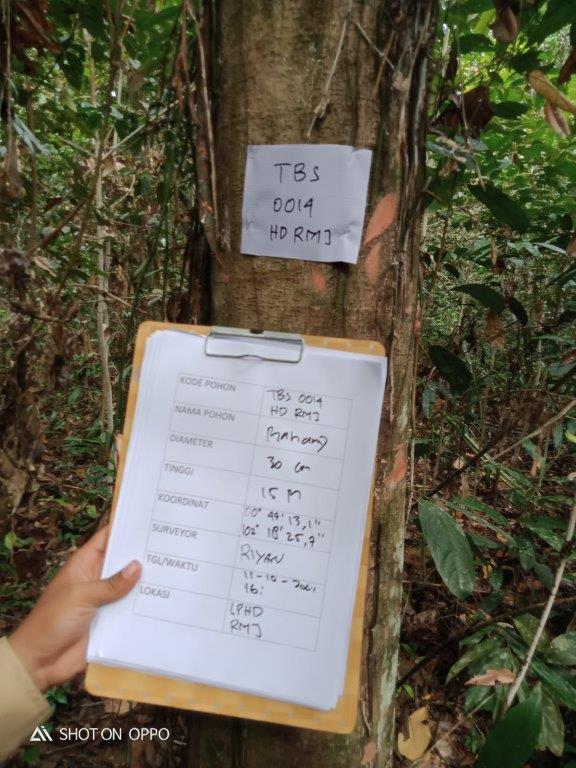 TBS
0014
HD RMJ
KODE POHON TBS 0014
HD RMJ
NAMA POHON
DIAMETER 30 cm
TINGGI 15 M
KOORDINAT
SURVEYOR RIYAN
TGL/WAKTU
16:
LOKASI LPHD
RMJ
SHOT ON OPPO